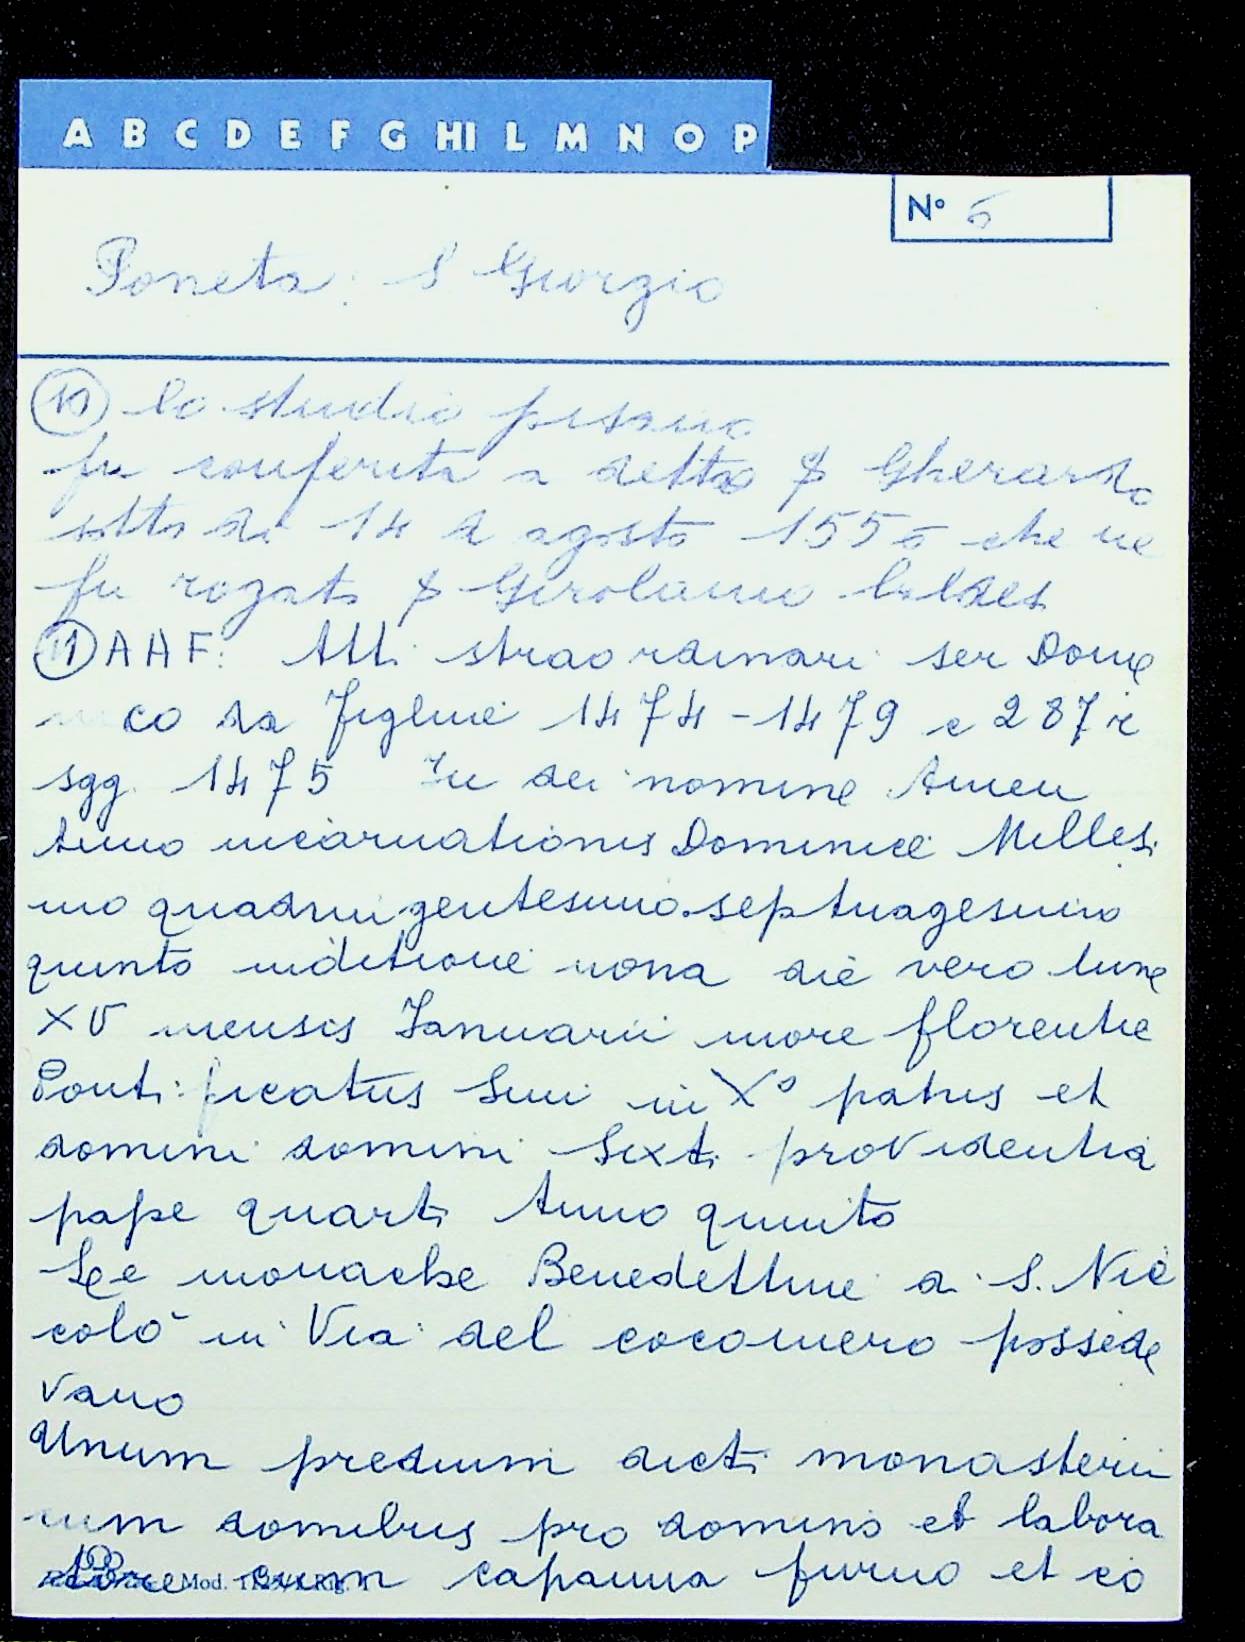 A B C D E F G HI L M N O P
N° 6
Poneta: S Giorgio
(10) lo studio pisano
fu conferita a detto S Gherardo
sotto di 14 d agosto 1556 che ne
fu rogato S Girolamo
(11) AAF: Atti straordinari ser Dome
nico da Figline 1474-1479 c 287r
sgg. 1475 In dei nomine Amen
Anno incarnationis Dominice Millesi
mo quadringentesimo septuagesimo
quinto inditione nona die vero lune
XV mensis Januarii more florentie
Pontificatus Smi in Xº patris et
domini domini Sixti providentia
pape quarti Anno quinto
Le monache Benedettine di S. Nic
colò in Via del cocomero possede
vano
Unum predium dicti monasterii
cum domibus pro domino et labora
tore cum capanna furno et co
Mod.